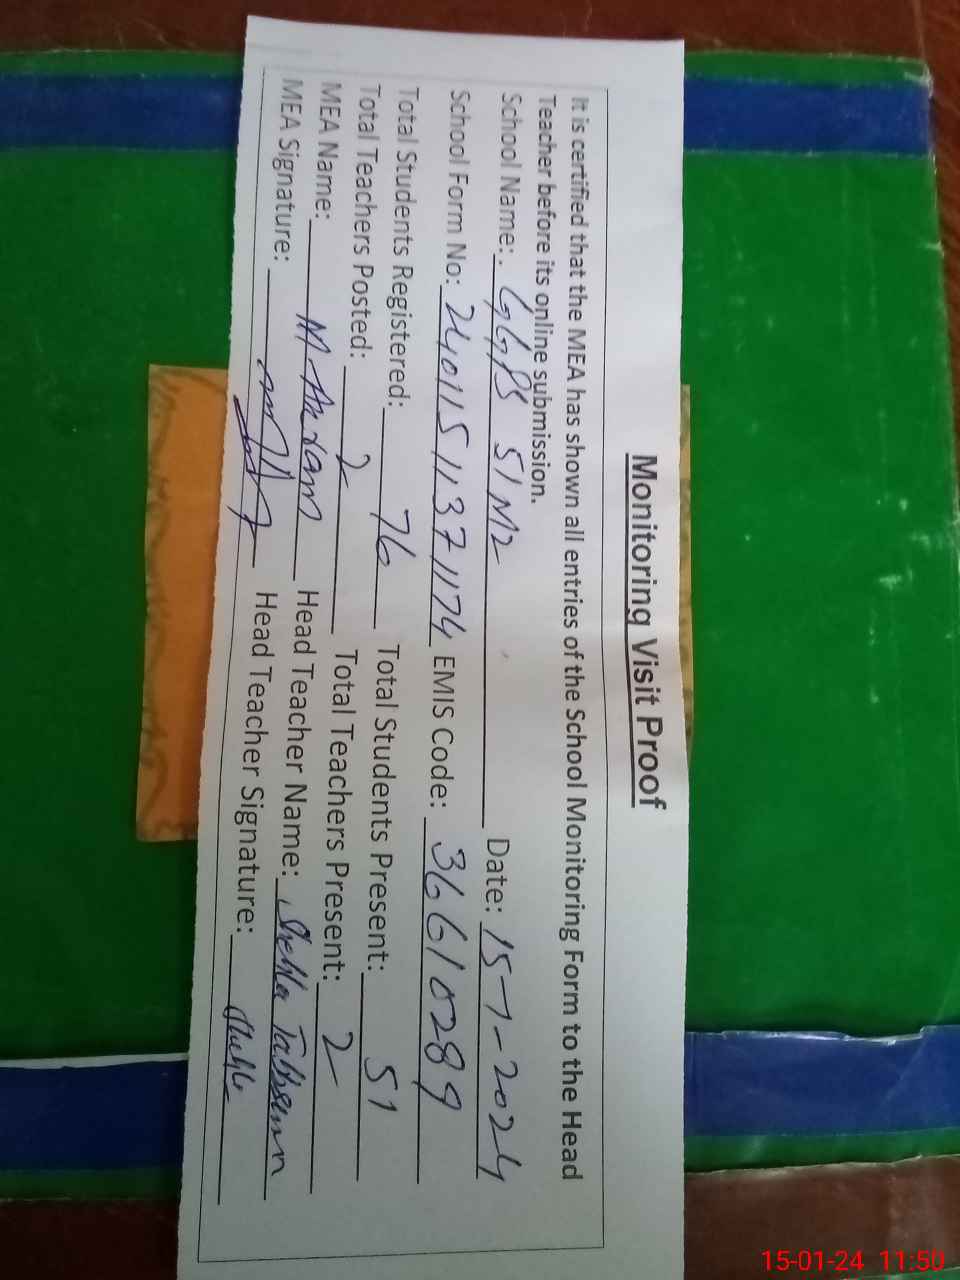 Monitoring Visit Proof
It is certified that the MEA has shown all entries of the School Monitoring Form to the Head
Teacher before its online submission.
School Name: GGPS 51 M2 Date: 15-1-2024
School Form No: 240115113711174 EMIS Code: 36610289
Total Students Registered: 76 Total Students Present: 51
Total Teachers Posted: 2 Total Teachers Present: 2
MEA Name: M Akram Head Teacher Name: Shehla Tabbsum
MEA Signature: Head Teacher Signature:
15-01-24 11:50